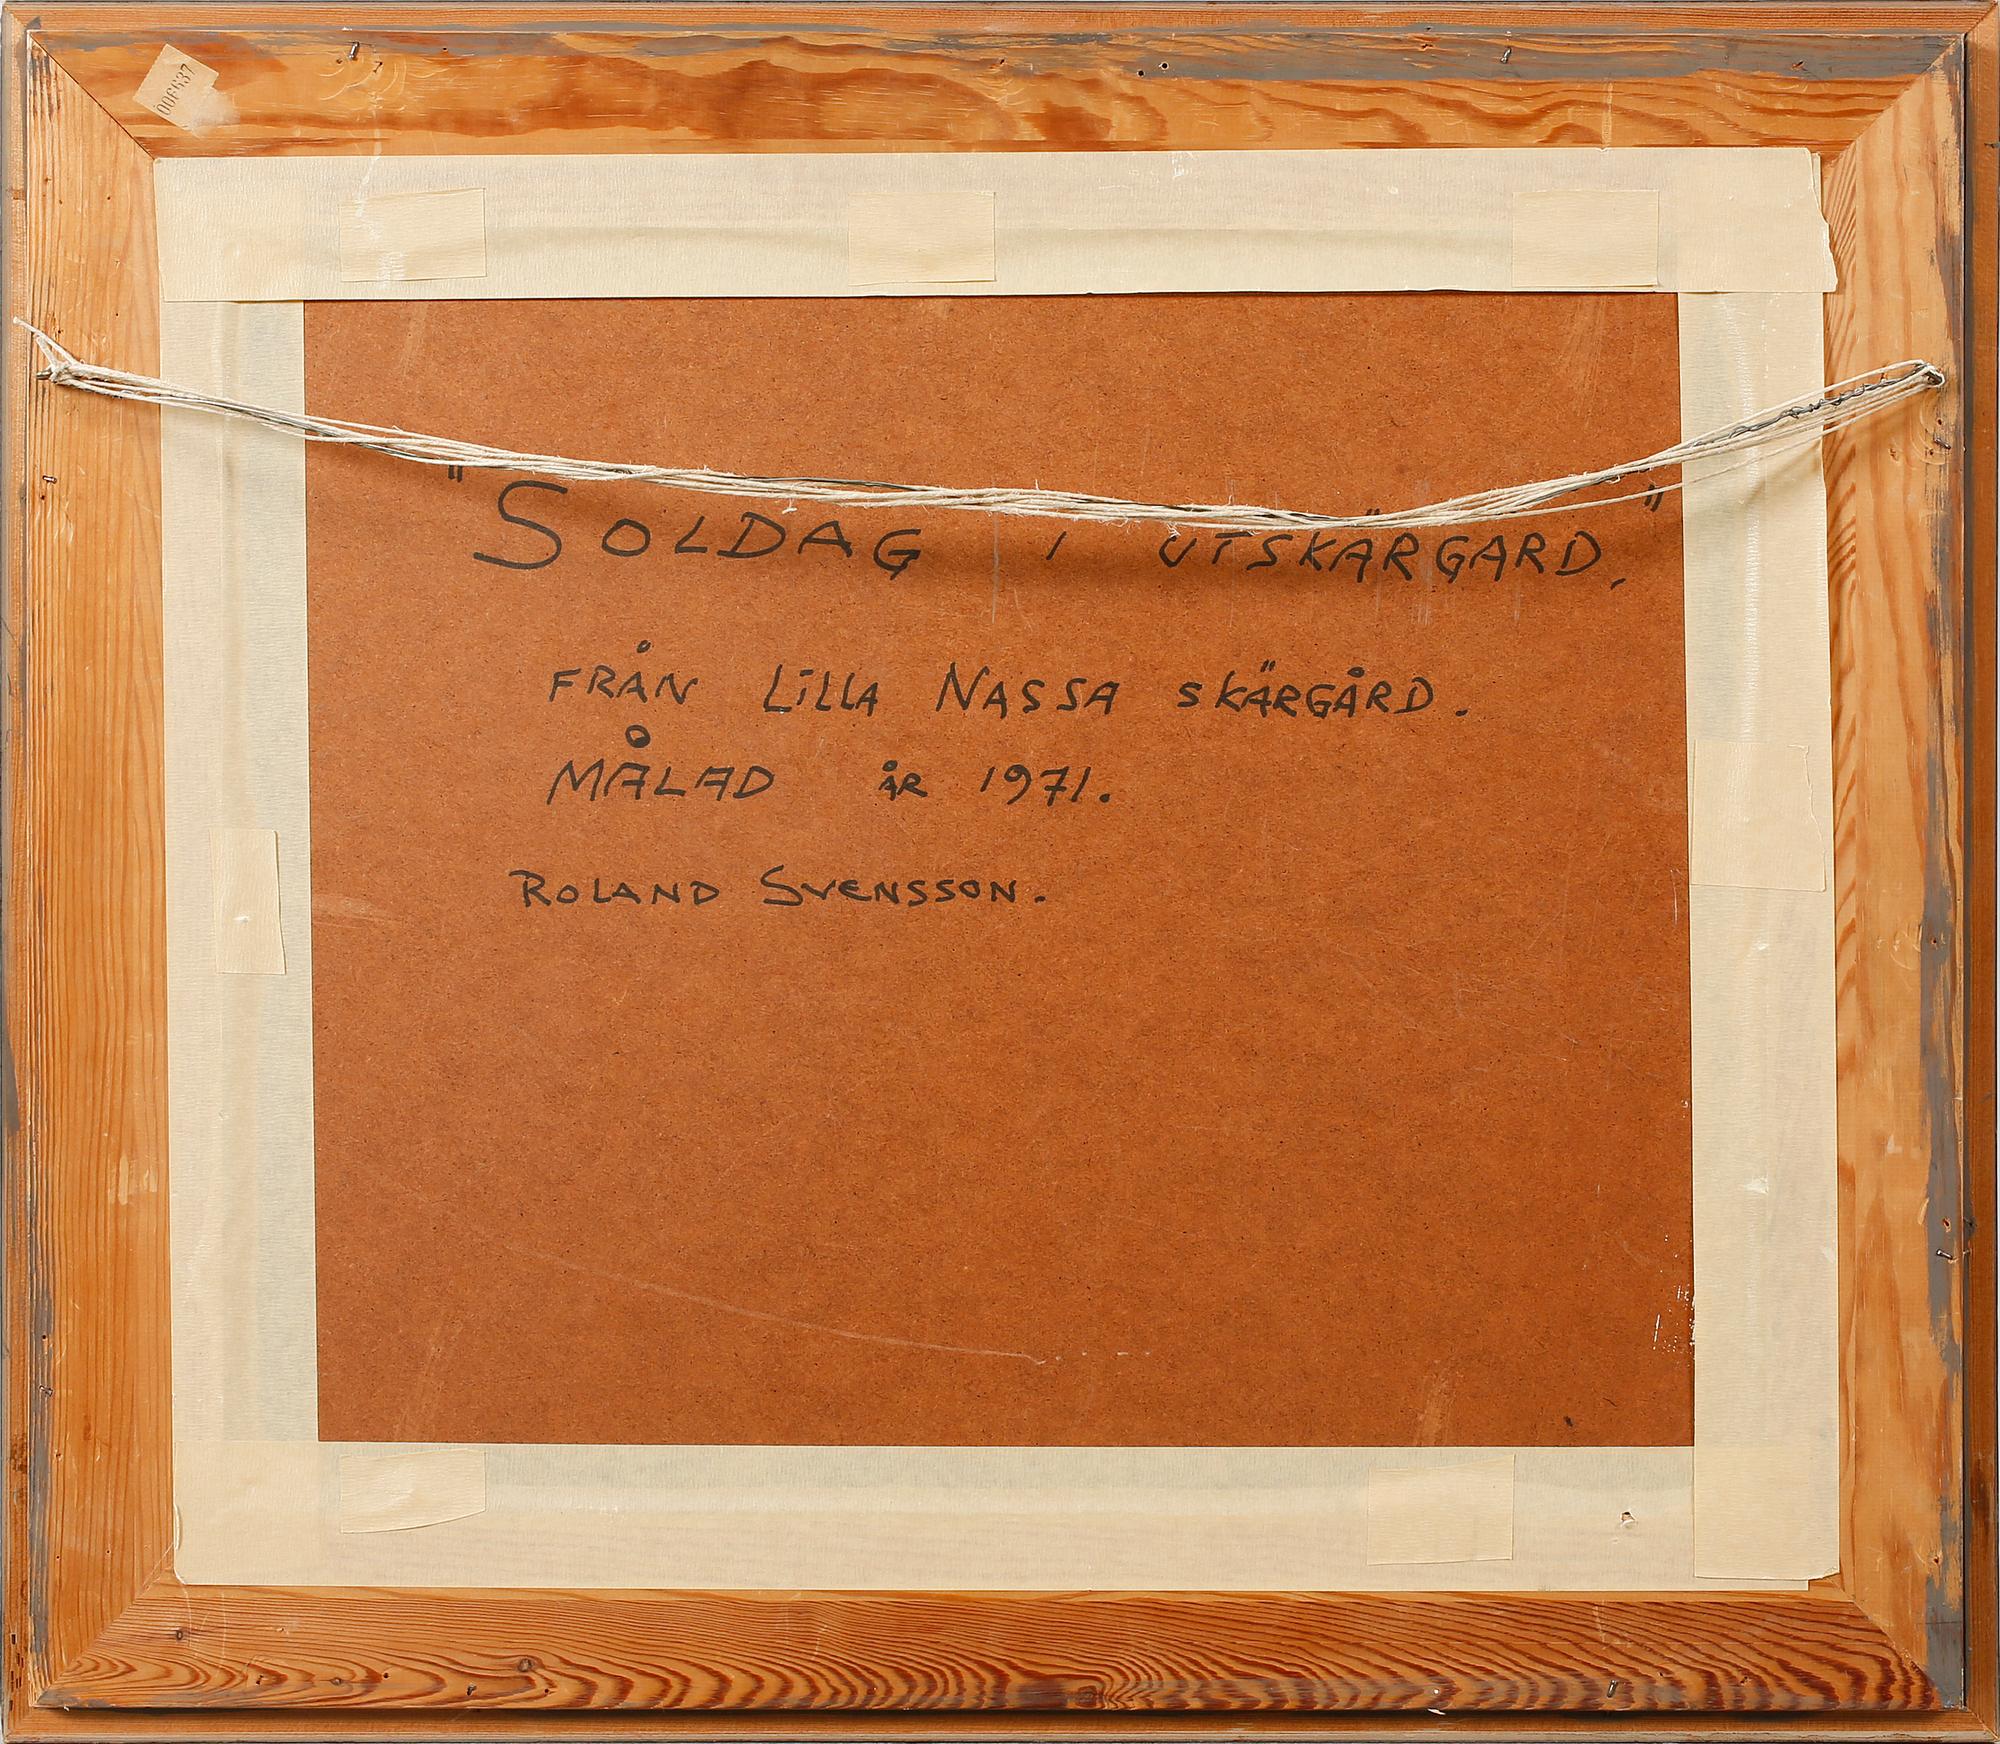 "SOLDAG I UTSKÄRGARD,"
FRÅN LILLA NASSA SKÄRGÅRD.
MÅLAD ÅR 1971.
ROLAND SVENSSON.